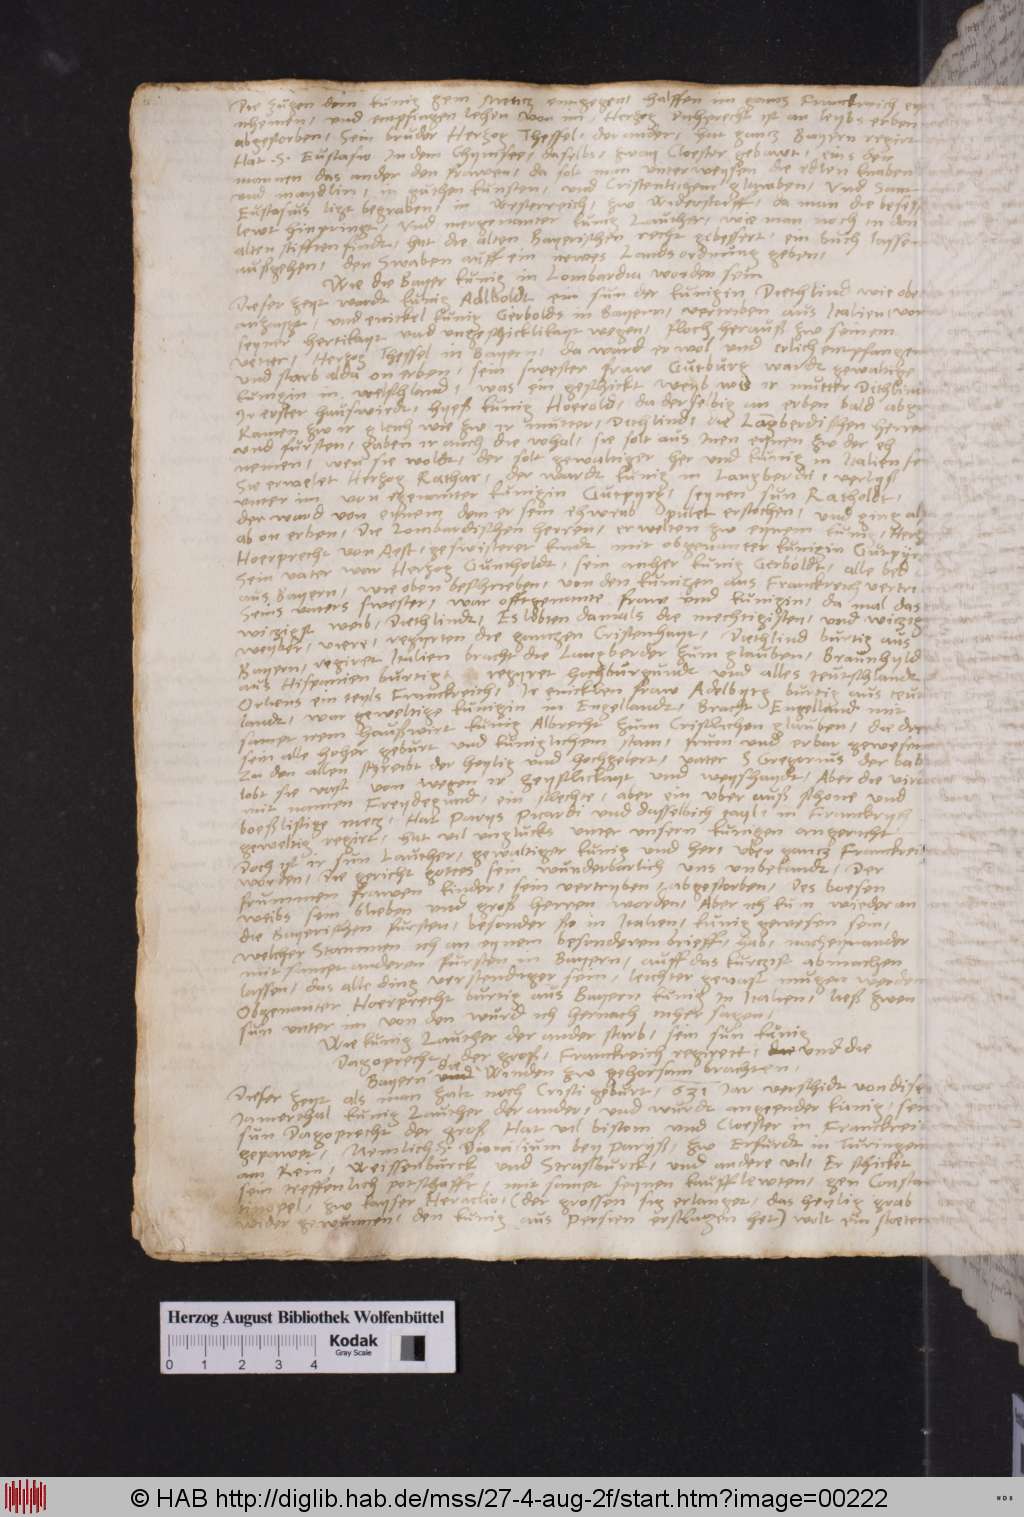 Die zugen dem kunig gem Mentz entgegen, halffen im gantz Franckreich ey
nhemen, und empfingen lehen von im, Hertzog Diethprecht ist an leybs erben
abgestorben, Sein bruder Hertzog Thessel, der ander, hat gantz Bayern regirt
Hat .S. Eustasiu In dem Chymsee, daselbs, zway Closter gebawt, eins den
mannen das ander den frawen, da solt man unterweysen die edlen knaben
und maydlin, in guthen kunsten, und Cristenlichem glauben, Und Sant
Eustasius ligt begraben, in Oesterreich, zw Widerstorff, da man die besess
lewt hinpringt, Und mergenanter kunig Lauther, wie man noch in den
alten stifften findt, hat die alten Bayerischen recht gebessert, ein buch lassen
aussgehen, den Swaben auff ein newes Landsordnung geben,
Wie die Bayer kunig in Lombardia worden sein
Dieser zeyt wardt kunig Adlwoldt ein sun der kunigin Diethlind wie obe
anzaygt, und enickel kunig Gerbolds in Bayern, vertriben aus Italien, von
seyner herttikayt und ungeschicklikayt wegen, floch herauss zw seinem
vetter, Hertzog Thessel in Bayern, da ward er wol und erlich empfangen
und starb alda on erben, sein swester fraw Gutburg wardt gewaltige
kunigin in welschland, was ein geschickt weyb wie ir mutter Diethlind
Ir erster hauswirdt, hyess kunig Hoerold, da derselbig an erben bald abg
Kamen zw ir gleich wie zw ir mutter, Diethlind, die Lamberdischen herren
und fursten, gaben ir auch die whal, sie solt aus Inen eynen zw der eh
nemen, wen sie woldt, der solt gewaltiger her und kunig in Italien se
Sie erwelet Hertzog Rathar, der wardt kunig in Langberdia, verlyss
unter im von egenanter kunigin Gutpyrg, seynen sun Ratholdt,
der ward von eynem dem er sein ehweib Opulet erstochen, und ging al
ab on erben, Die Lombardischen herren, erwelten zw eynem kunig, Hertz
Hoerprecht von Aest, geswisteret kindt mit obgenanter kunigin Gutpyrg
Sein vater war Hertzog Guntholdt, sein anher kunig Gerboldt, alle bed
aus Bayern, wie oben beschrieben, von den kunigen aus Franckreich vertri
Seins vaters swester, war offtgenante fraw und kunigin, da mal das
witzigst weib, Diethlindt, Es lebten damals die mechtigisten, und witzig
weyber, viere, regirten die gantzen Cristenhayt, Diethlind burtig aus
Bayern, regiret Italien bracht die Langberder zum glauben, Braunhyld
aus Hispanien burtig, regyret hochburgundt und alles teutschlandt
Orliens ein teyls Franckreich, Ir enicklen fraw Adelbyrg burtig aus teu
landt, war geweltige kunigin in Engellandt, Bracht Engelland mit
sampt irem hausswirt kunig Albrecht zum Cristlichen glauben, die drey
sein alle hoher geburt und kuniglichem stam, frum und erbar gewesen
Zu den allen schreibt der heylig und hochgelert, vater S Gregorius der bab
lobt sie vast von wegen ir geystlickayt und weysshaydt, Aber die vird
mit namen Freydegund, ein slechte, aber ein uber auss schone und
boesslistige metz, Hat Parys Picardi und dasselbich tayl, in Franckrych
geweltig regirt, hat vil unglucks unter unsern kunigen angericht
Doch ist ir sun Lauther, gewaltiger kunig und herr uber gantz Franckrei
worden, Die gericht gottes sein wunderbarlich uns unbekandt, Der
frummen frawen kinder, sein vertryben, abgestorben, Des boesen
weibs sein blieben und gross herren worden, Aber ich kum wieder an
die Bayerischen fursten, besonder sso in Italien, kunig gewesen sein,
welcher Stammen ich an eynem besonderen brieff, hab, nacheynander
mit sampt anderen fursten in Bayern, auff das kurtzist abmachen
lassen, das alle ding verstendiger sein, leichter gewust mugen werden
Obgenanter Hoerprecht burtig aus Bayern kunig in Italien, liess zwen
sun unter im von den wurd ich hernach myer sagen,
Wie kunig Lauther der ander starb, sein sun kunig
Dagoprecht der gross, Franckreich regirett, und die
Bayern die Winden zw gehorsam brachten,
Dieser zeyt als man zalt noch Cristi geburt, 631 Jar verschidt von diser
Jamerthal kunig Lauther der ander, und wurdt angeender kunig, sein
sun Dagoprecht der gross Hat vil bistom und Closter in Franckrei
gepawet, Nemlich S. Dionisium bey Paryss, zw Erfurdt in Turingen
am Rein, Weissenburck und Strasburck, und andere vil, Er schicket
sein treffenlich potschafft, mit sampt seynen kauffslewten, gen Constan
tinopel, zw kayser Heraclio, (der grossen sig erlanget, das heylig grab
wider gewunnen, den kunig aus Persien erschlagen het) wolt ein staeten
Herzog August Bibliothek Wolfenbüttel
Kodak
Gray Scale
0 1 2 3 4
© HAB http://diglib.hab.de/mss/27-4-aug-2f/start.htm?image=00222